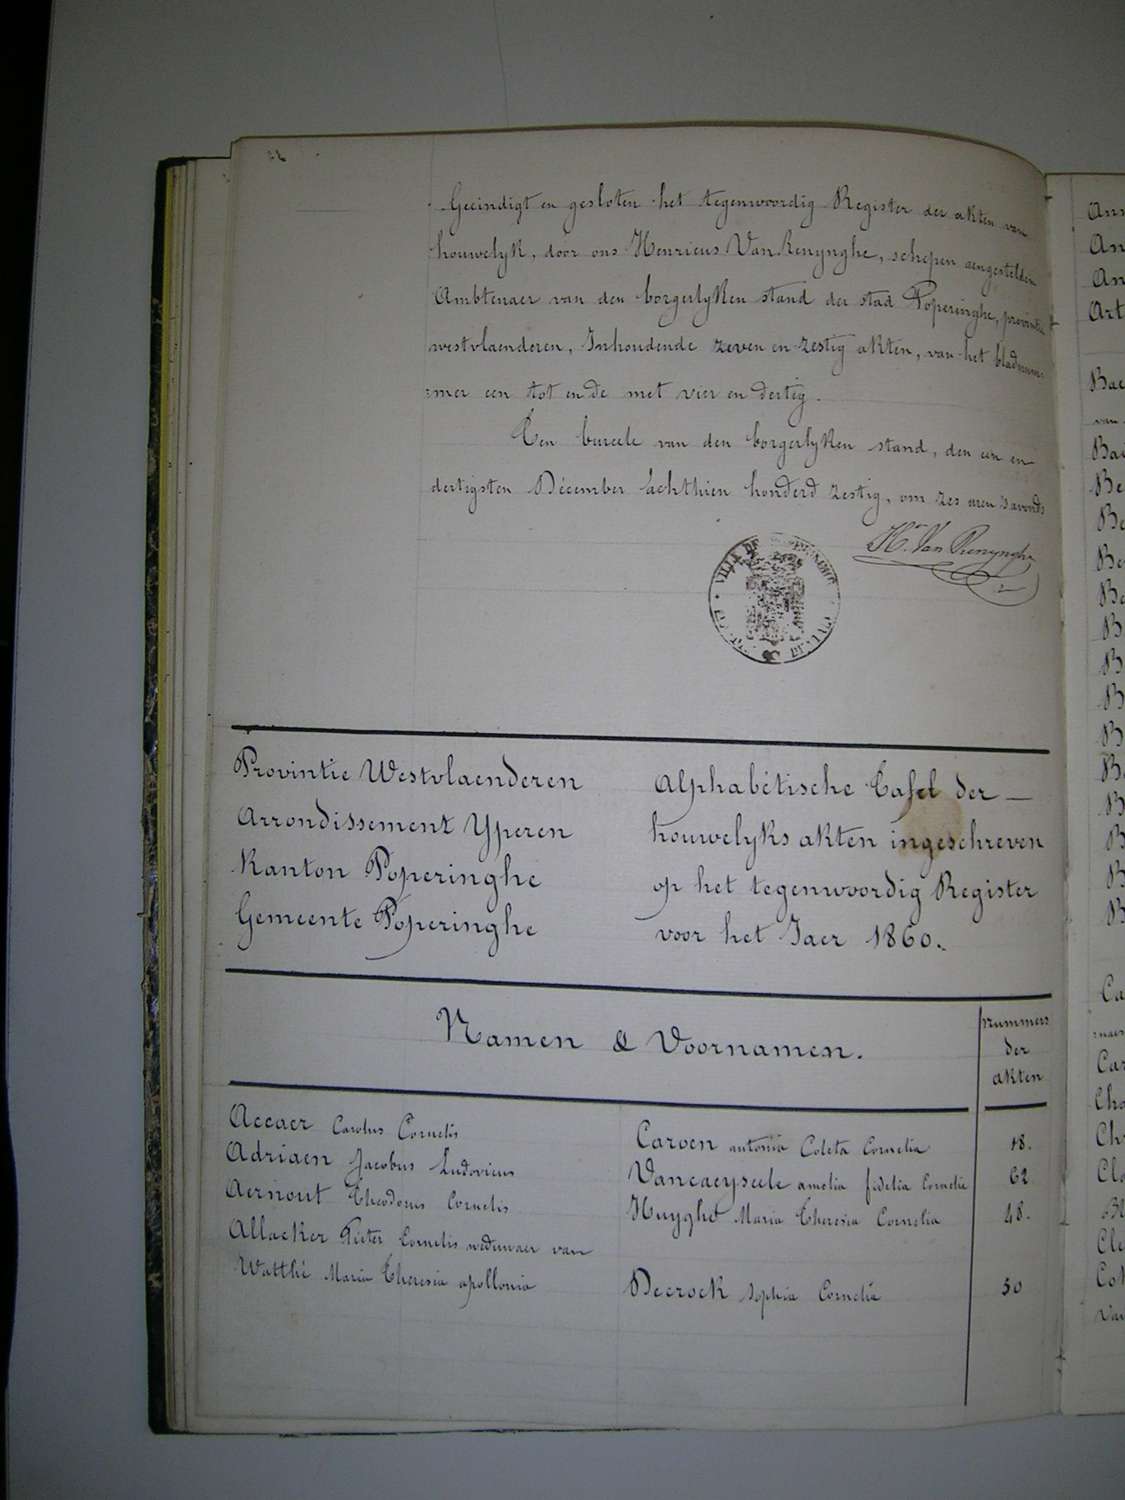 Geëindigt en gesloten het tegenwoordig Register der akten van
houwelyk, door ons Henricus Van Renynghe, schepen aengestelden
Ambtenaer van den borgerlyken stand der stad Poperinghe, provintie
westvlaenderen, Inhoudende zeven en zestig akten, van het bladnum-
=mer een tot en de met vier en dertig.
Ten bureele van den borgerlyken stand, den een en
dertigsten Décember achthien honderd zestig, om zes uren 's avonds
Hr. Van Renynghe
VILLE DE
Provintie Westvlaenderen
Arrondissement Yperen
Kanton Poperinghe
Gemeente Poperinghe
Alphabétische Tafel der —
houwelyks akten ingeschreven
op het tegenwoordig Register
voor het Jaer 1860.
Namen & Voornamen.
nummers
der
akten
Accaer Carolus Cornelis Caroen antonia Coleta Cornelia 18.
Adriaen Jacobus Ludovicus Vancaeyseele amelia fidelia Cornelia 62
Aernout Théodorus Cornelis Huyghe Maria Theresia Cornelia 48.
Allacker Pieter Cornelis weduwaer van
Watthé Maria Theresia apollonia Decrock Sophia Cornelia 50
Ann
An
An
Art
Bae
van
Ba
Be
Be
Be
Be
B
B
B
B
Be
B
B
B
B
Ca
Car
Cho
Ch
Clo
Cle
Cok
Van